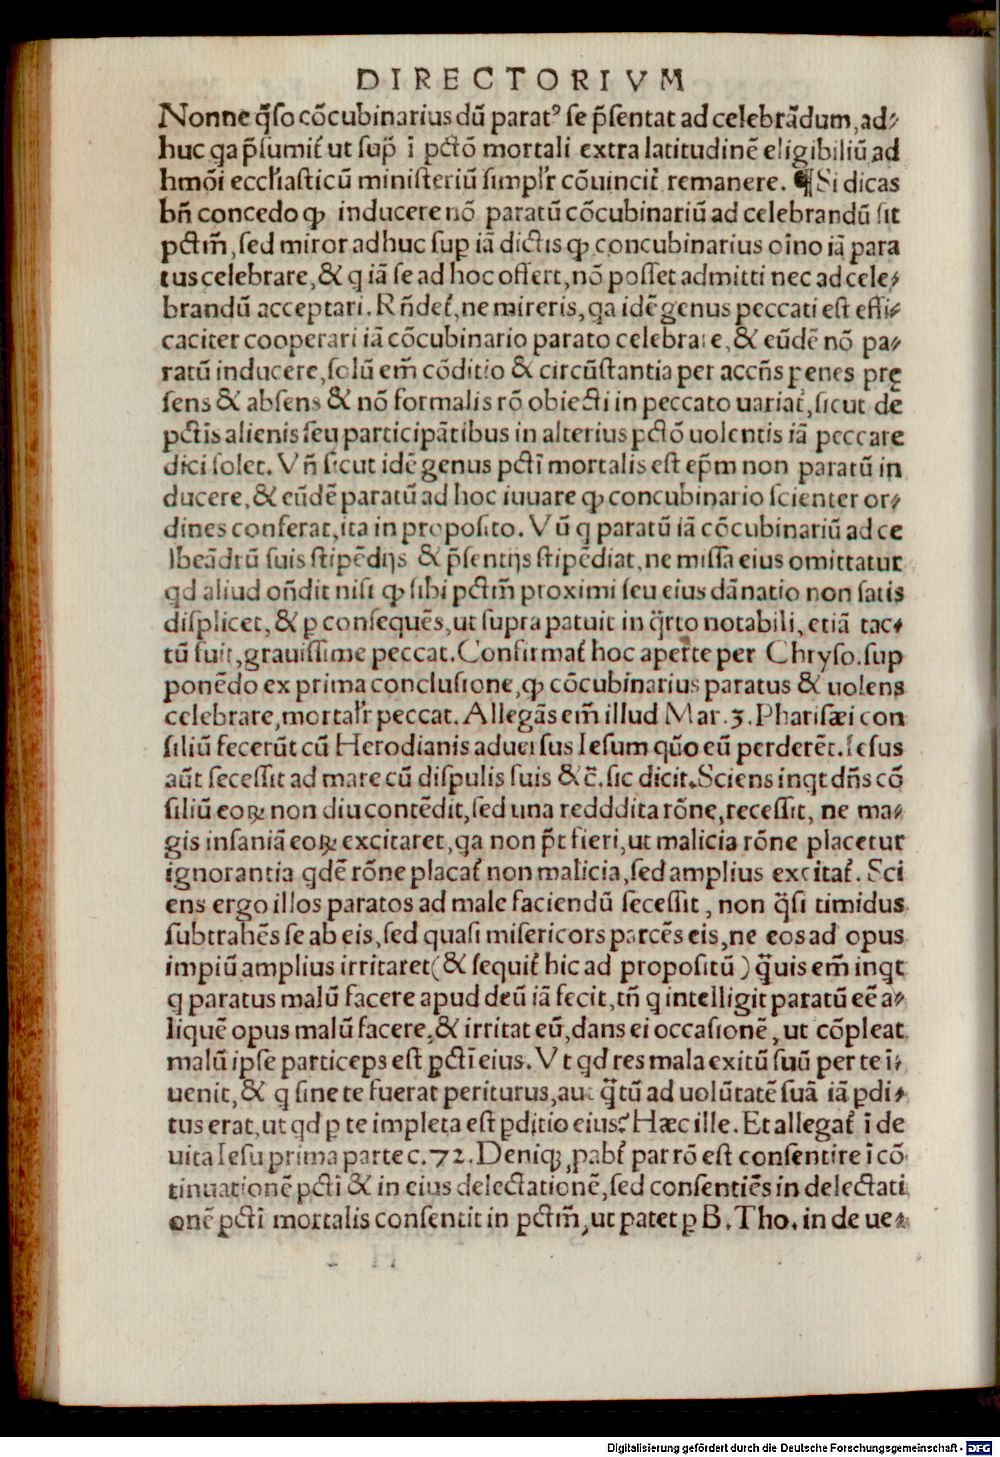 DIRECTORIVM
Nonne q̃ſo cõcubinarius dũ paratꝰ ſe p̃ſentat ad celebrãdum, ad⸗
huc qa p̃ſumit᷑ ut ſup̃ ĩ pctõ mortali extra latitudinẽ eligibiliũ ad
hmõi eccl'iaſticũ miniſteriũ ſimpl'r cõuincit᷑ remanere. ¶ Si dicas
bñ concedo ꝙ inducere nõ paratũ cõcubinariũ ad celebrandũ ſit
pctm̃, ſed miror adhuc ſup iã dictis ꝙ concubinarius oĩno iã para
tus celebrare, & q iã ſe ad hoc offert, nõ poſſet admitti nec ad cele⸗
brandũ acceptari. Rñdet᷑, ne mireris, qa idẽ genus peccati eſt effi⸗
caciter cooperari iã cõcubinario parato celebrare, & eũdẽ nõ pa⸗
ratũ inducere, ſolũ em̃ cõditio & circũſtantia per accñs penes prę
ſens & abſens & nõ formalis rõ obiecti in peccato uariat᷑, ſicut de
pctĩs alienis ſeu participãtibus in alterius pctõ uolentis iã peccare
dici ſolet. Vñ ſicut idẽ genus pctĩ mortalis eſt ep̃m non paratũ in
ducere, & eũdẽ paratũ ad hoc iuuare ꝙ concubinario ſcienter or⸗
dines conferat, ita in propoſito. Vñ q paratũ iã cõcubinariũ ad ce
lbeãdrũ ſuis ſtipẽdijs & p̃ſentijs ſtipẽdiat, ne miſſa eius omittatur
qd aliud oñdit niſi ꝙ ſibi pctm̃ proximi ſeu eius dãnatio non ſatis
diſplicet, & p conſequẽs, ut ſupra patuit in q̃rto notabili, etiã tac⸗
tũ fuit, grauiſſime peccat. Confirmat᷑ hoc aperte per Chryſo. ſup
ponẽdo ex prima concluſione, ꝙ cõcubinarius paratus & uolens
celebrare, mortal'r peccat. Allegãs em̃ illud Mar. 3. Phariſæi con
ſiliũ fecerũt cũ Herodianis aduerſus Ieſum quõ eũ perderẽt. Ieſus
aũt ſeceſſit ad mare cũ diſpulis ſuis &c̃. ſic dicit. Sciens inqt dñs cõ
ſiliũ eoꝝ non diu contẽdit, ſed una redddita rõne, receſſit, ne ma⸗
gis inſaniã eoꝝ excitaret, qa non p̃t fieri, ut malicia rõne placetur
ignorantia qdẽ rõne placat᷑ non malicia, ſed amplius excitat᷑. Sci
ens ergo illos paratos ad male faciendũ ſeceſſit, non q̃ſi timidus
ſubtrahẽs ſe ab eis, ſed quaſi miſericors parcẽs eis, ne eos ad opus
impiũ amplius irritaret (& ſequit᷑ hic ad propoſitũ) q̃uis em̃ inqt
q paratus malũ facere apud deũ iã fecit, tñ q intelligit paratũ eẽ a⸗
liquẽ opus malũ facere, & irritat eũ, dans ei occaſionẽ, ut cõpleat
malũ ipſe particeps eſt pctĩ eius. Vt qd res mala exitũ ſuũ per te ĩ⸗
uenit, & q ſine te fuerat periturus, aut q̃tũ ad uolũtatẽ ſuã iã ꝑdi⸗
tus erat, ut qd ꝑ te impleta eſt ꝑditio eius? Hæc ille. Et allegat᷑ ĩ de
uita Ieſu prima parte c. 72. Deniqꝫ, ꝓbat᷑ par rõ eſt conſentire ĩ cõ
tinuationẽ pctĩ & in eius delectationẽ, ſed conſentiẽs in delectati
onẽ pctĩ mortalis conſentit in pctm̃, ut patet ꝑ B. Tho. in de ue⸗
Digitalisierung gefördert durch die Deutsche Forschungsgemeinschaft - DFG